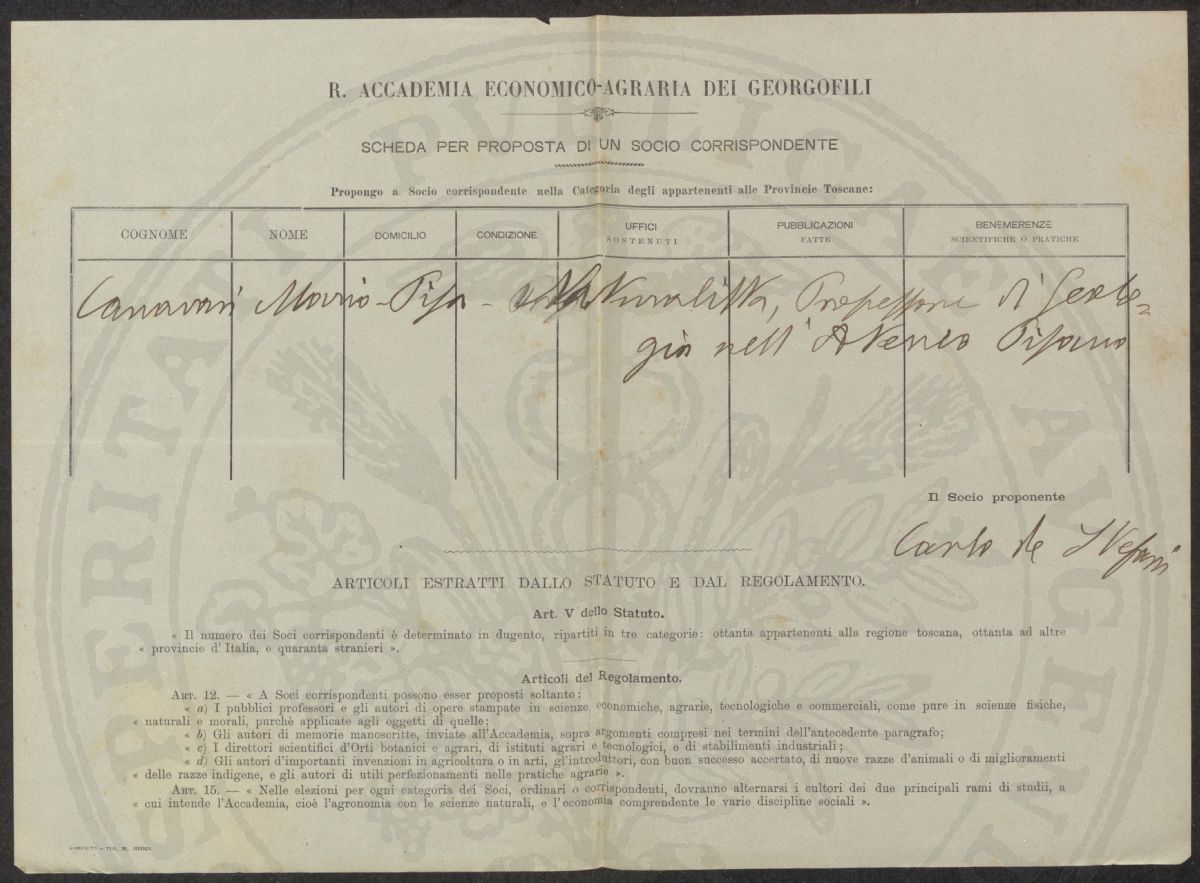 R. ACCADEMIA ECONOMICO-AGRARIA DEI GEORGOFILI
SCHEDA PER PROPOSTA DI UN SOCIO CORRISPONDENTE
Propongo a Socio corrispondente nella Categoria degli appartenenti alle Provincie Toscane:
COGNOME NOME DOMICILIO CONDIZIONE UFFICI SOSTENUTI PUBBLICAZIONI FATTE BENEMERENZE SCIENTIFICHE O PRATICHE
Canavari Mario - Pisa - Naturalista, Professore di Geolo=
gia nell' Ateneo Pisano
Il Socio proponente
Carlo de Stefani
ARTICOLI ESTRATTI DALLO STATUTO E DAL REGOLAMENTO.
Art. V dello Statuto.
« Il numero dei Soci corrispondenti è determinato in dugento, ripartiti in tre categorie: ottanta appartenenti alla regione toscana, ottanta ad altre
« provincie d'Italia, e quaranta stranieri ».
Articoli del Regolamento.
ART. 12. — « A Soci corrispondenti possono esser proposti soltanto:
« a) I pubblici professori e gli autori di opere stampate in scienze economiche, agrarie, tecnologiche e commerciali, come pure in scienze fisiche,
« naturali e morali, purchè applicate agli oggetti di quelle;
« b) Gli autori di memorie manoscritte, inviate all'Accademia, sopra argomenti compresi nei termini dell'antecedente paragrafo;
« c) I direttori scientifici d'Orti botanici e agrari, di istituti agrari e tecnologici, e di stabilimenti industriali;
« d) Gli autori d'importanti invenzioni in agricoltura o in arti, gl'introduttori, con buon successo accertato, di nuove razze d'animali o di miglioramenti
« delle razze indigene, e gli autori di utili perfezionamenti nelle pratiche agrarie ».
ART. 15. — « Nelle elezioni per ogni categoria dei Soci, ordinari o corrispondenti, dovranno alternarsi i cultori dei due principali rami di studii, a
« cui intende l'Accademia, cioè l'agronomia con le scienze naturali, e l'economia comprendente le varie discipline sociali ».
TIP. M. RICCI
PROSPERITATI PUBLICAE AUGENDAE